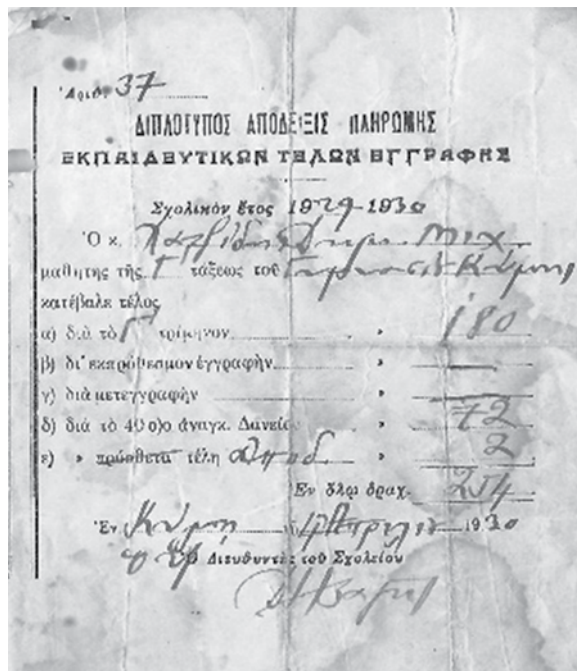 Ἀριθ. 37
ΔΙΠΛΟΤΥΠΟΣ ΑΠΟΔΕΙΞΙΣ ΠΛΗΡΩΜΗΣ
ΕΚΠΑΙΔΕΥΤΙΚΩΝ ΤΕΛΩΝ ΕΓΓΡΑΦΗΣ
Σχολικὸν ἔτος 1929-1930
Ὁ κ. Μιχ.
μαθητης τῆς Γ τάξεως τοῦ Κύμης
κατέβαλε τέλος
α) διὰ τὸ Γ τρίμηνον » 180
β) δι' ἐκπρόθεσμον ἐγγραφὴν » —
γ) διὰ μετεγγραφὴν » —
δ) διὰ τὸ 40 ο)ο ἀναγκ. Δανείου » 72
ε) » πρόσθετα τέλη » 2
Ἐν ὅλῳ δραχ. 254
Ἐν Κύμῃ Ἀπριλίου 1930
Ὁ Διευθυντὴς τοῦ Σχολείου